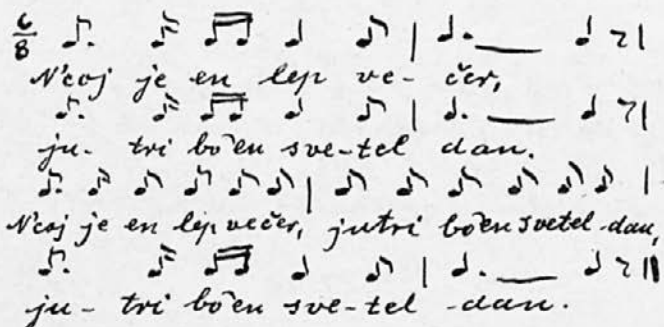 6/8
N'coj je en lep ve- čer,
ju- tri bo'en sve-tel dan.
N'coj je en lep večer, jutri bo'en svetel dan,
ju- tri bo'en sve-tel dan.